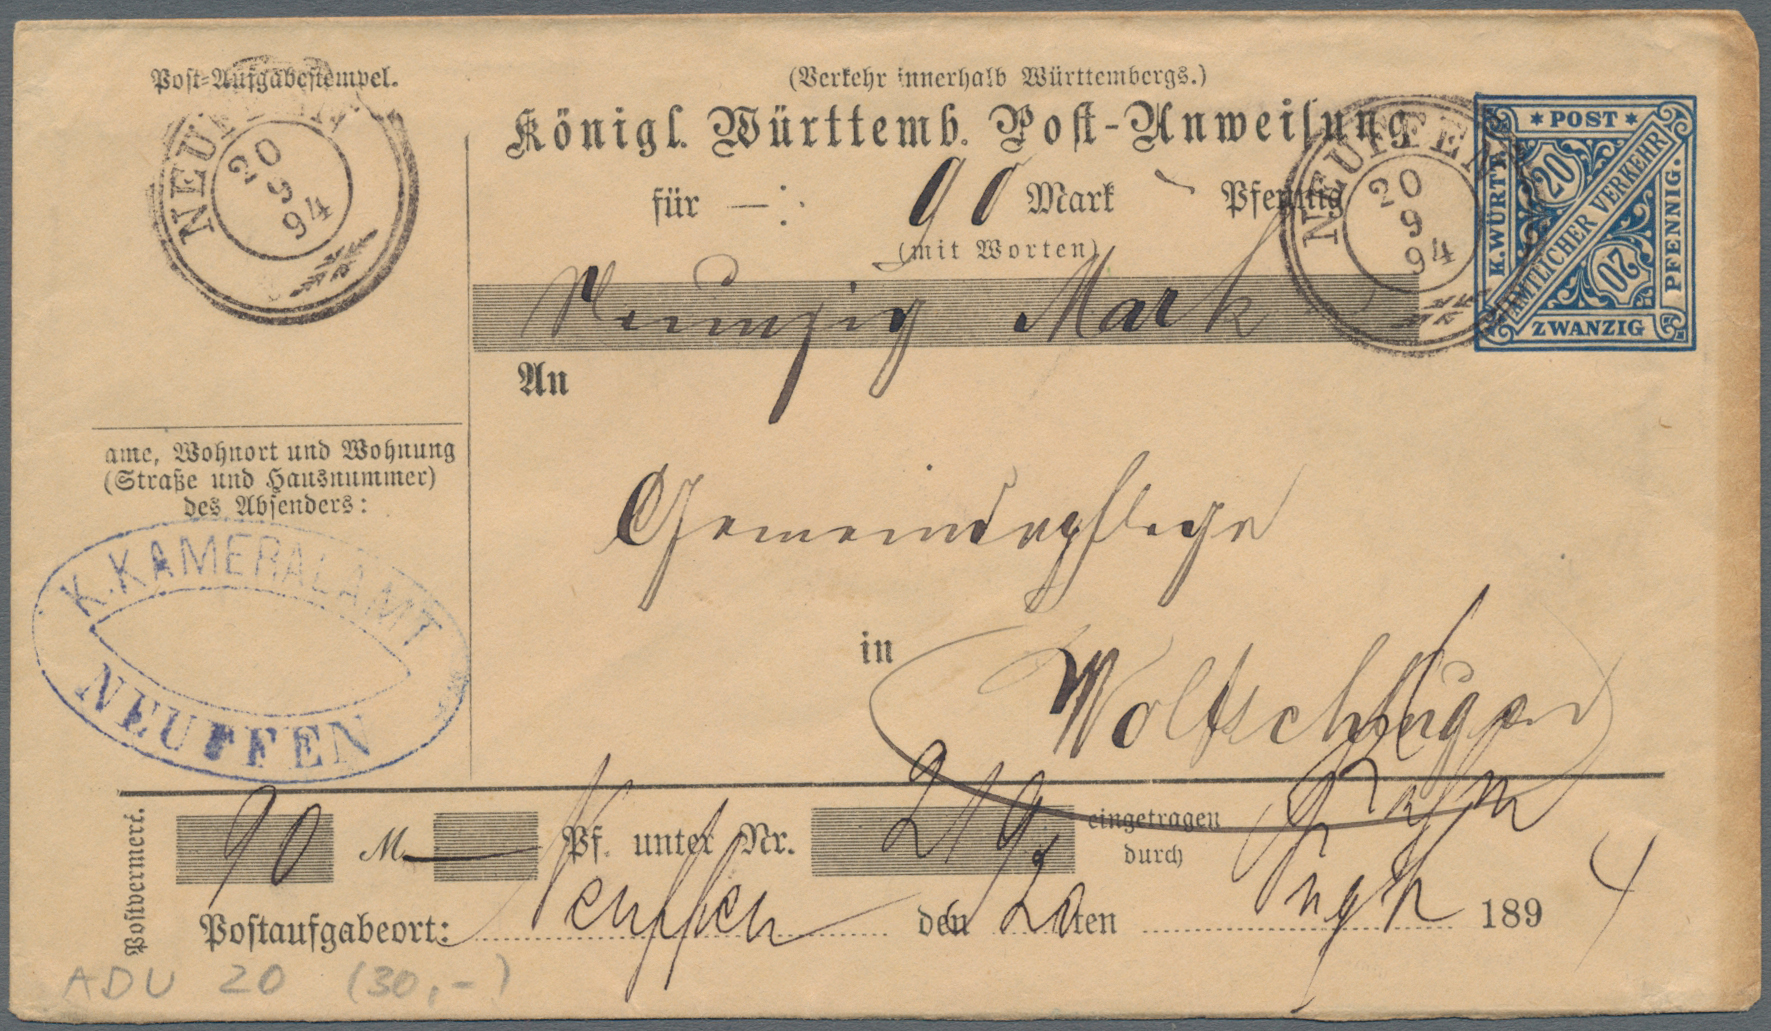 Post-Aufgabestempel.
NEUFFEN
20
9
94
(Verkehr innerhalb Württembergs.)
Königl. Württemb. Post-Anweisung
für —: 90 Mark Pfennig
(mit Worten)
Neunzig Mark
NEUFFEN
20
9
94
* POST *
K.WÜRTT.
20
AMTLICHER VERKEHR
20
PFENNIG.
ZWANZIG
An
Gemeindepflege
in Wolfschlugen
ame, Wohnort und Wohnung
(Straße und Hausnummer)
des Absenders:
K. KAMERALAMT
NEUFFEN
Postvermerk.
90 M. — Pf. unter Nr. 219 eingetragen
durch
Postaufgabeort: Neuffen den 20ten 1894
ADU 20 (30,-)